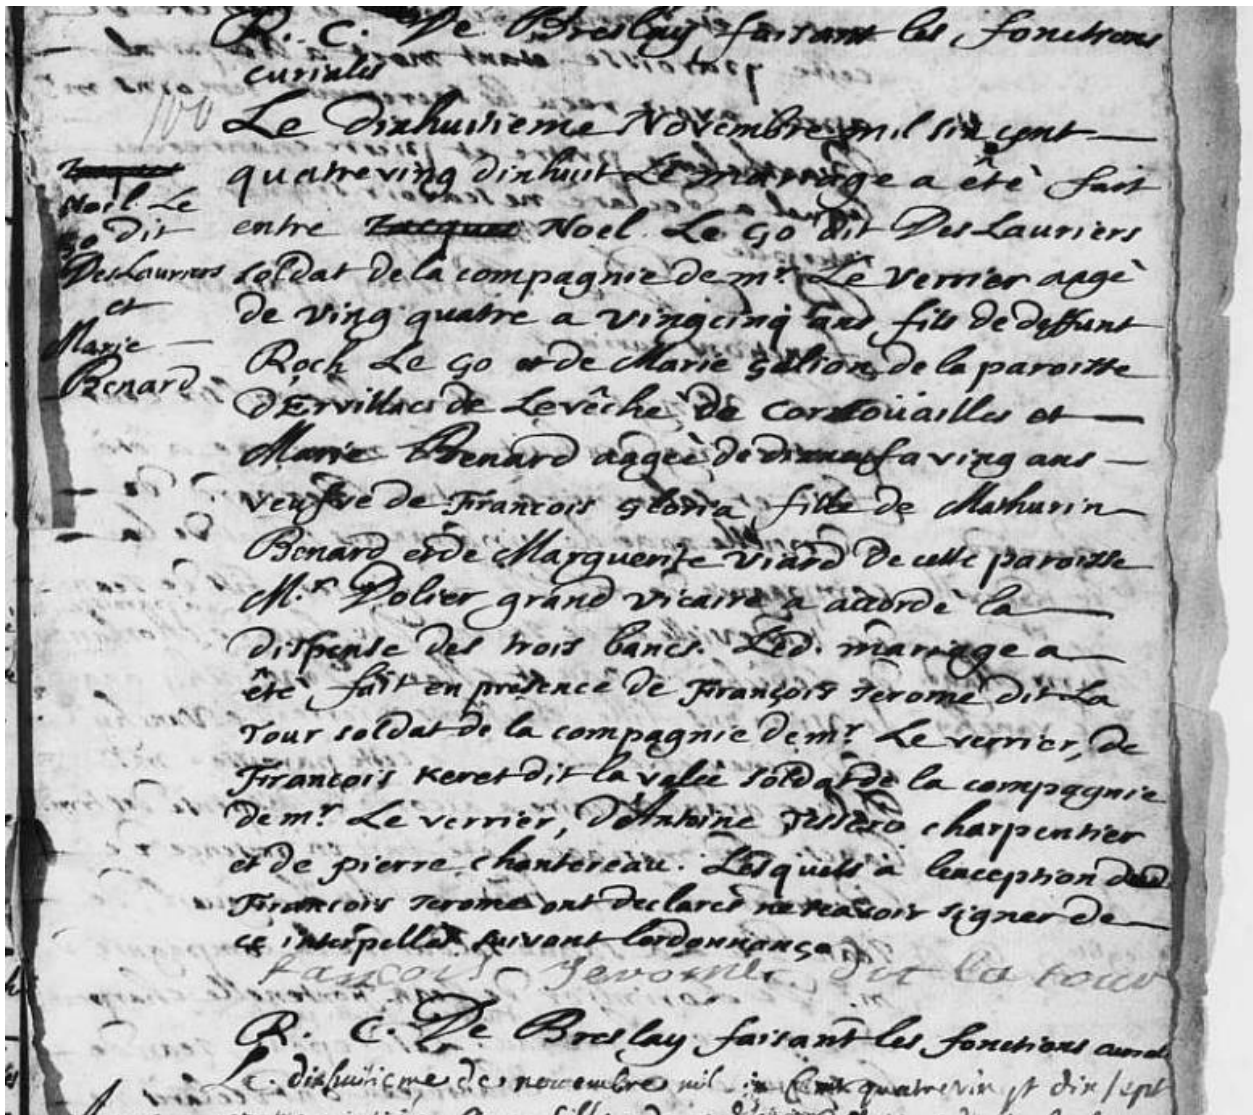 R. C. De Breslay faisant les fonctions
curiales
100
Le dixhuitieme Novembre mil six cent
quatreving dixhuit Le marriage a êtè fait
entre Jacques Noel Le Go dit Des Lauriers
soldat de la compagnie de mr. Le Verrier aagè
de ving quatre a vingcinq ans fils de deffunt
Roch Le Go et de Marie Gelion de la paroisse
D'Ervillac de Levêchè de Cornoüailles et
Marie Benard aageè de dixneuf a ving ans
veufve de François Gloria fille de Mathurin
Benard et de Marguerite Viard De cette paroisse
Mr. Dolier grand vicaire a accordè la
dispense des trois bancs. Led. mariage a
êtè fait en prèsence de François Jerome dit La
Tour soldat de la compagnie de mr. Le verrier, de
François Keret dit la valeè soldat de la compagnie
de mr. Le verrier, d'Antoine Tessero charpentier
et de pierre chantereau. Lesquels à lexception dud
François Jerome ont declarès ne scavoir signer de
ce interpellès suivant lordonnance
françois Jerosme dit la tour
R. C. De Breslay faisant les fonctions curial
Le dixhuitieme de novembre mil six Cent quatrevingt dix sept
Jacques
Noel Le
Go dit
Des Lauriers
et
Marie
Benard